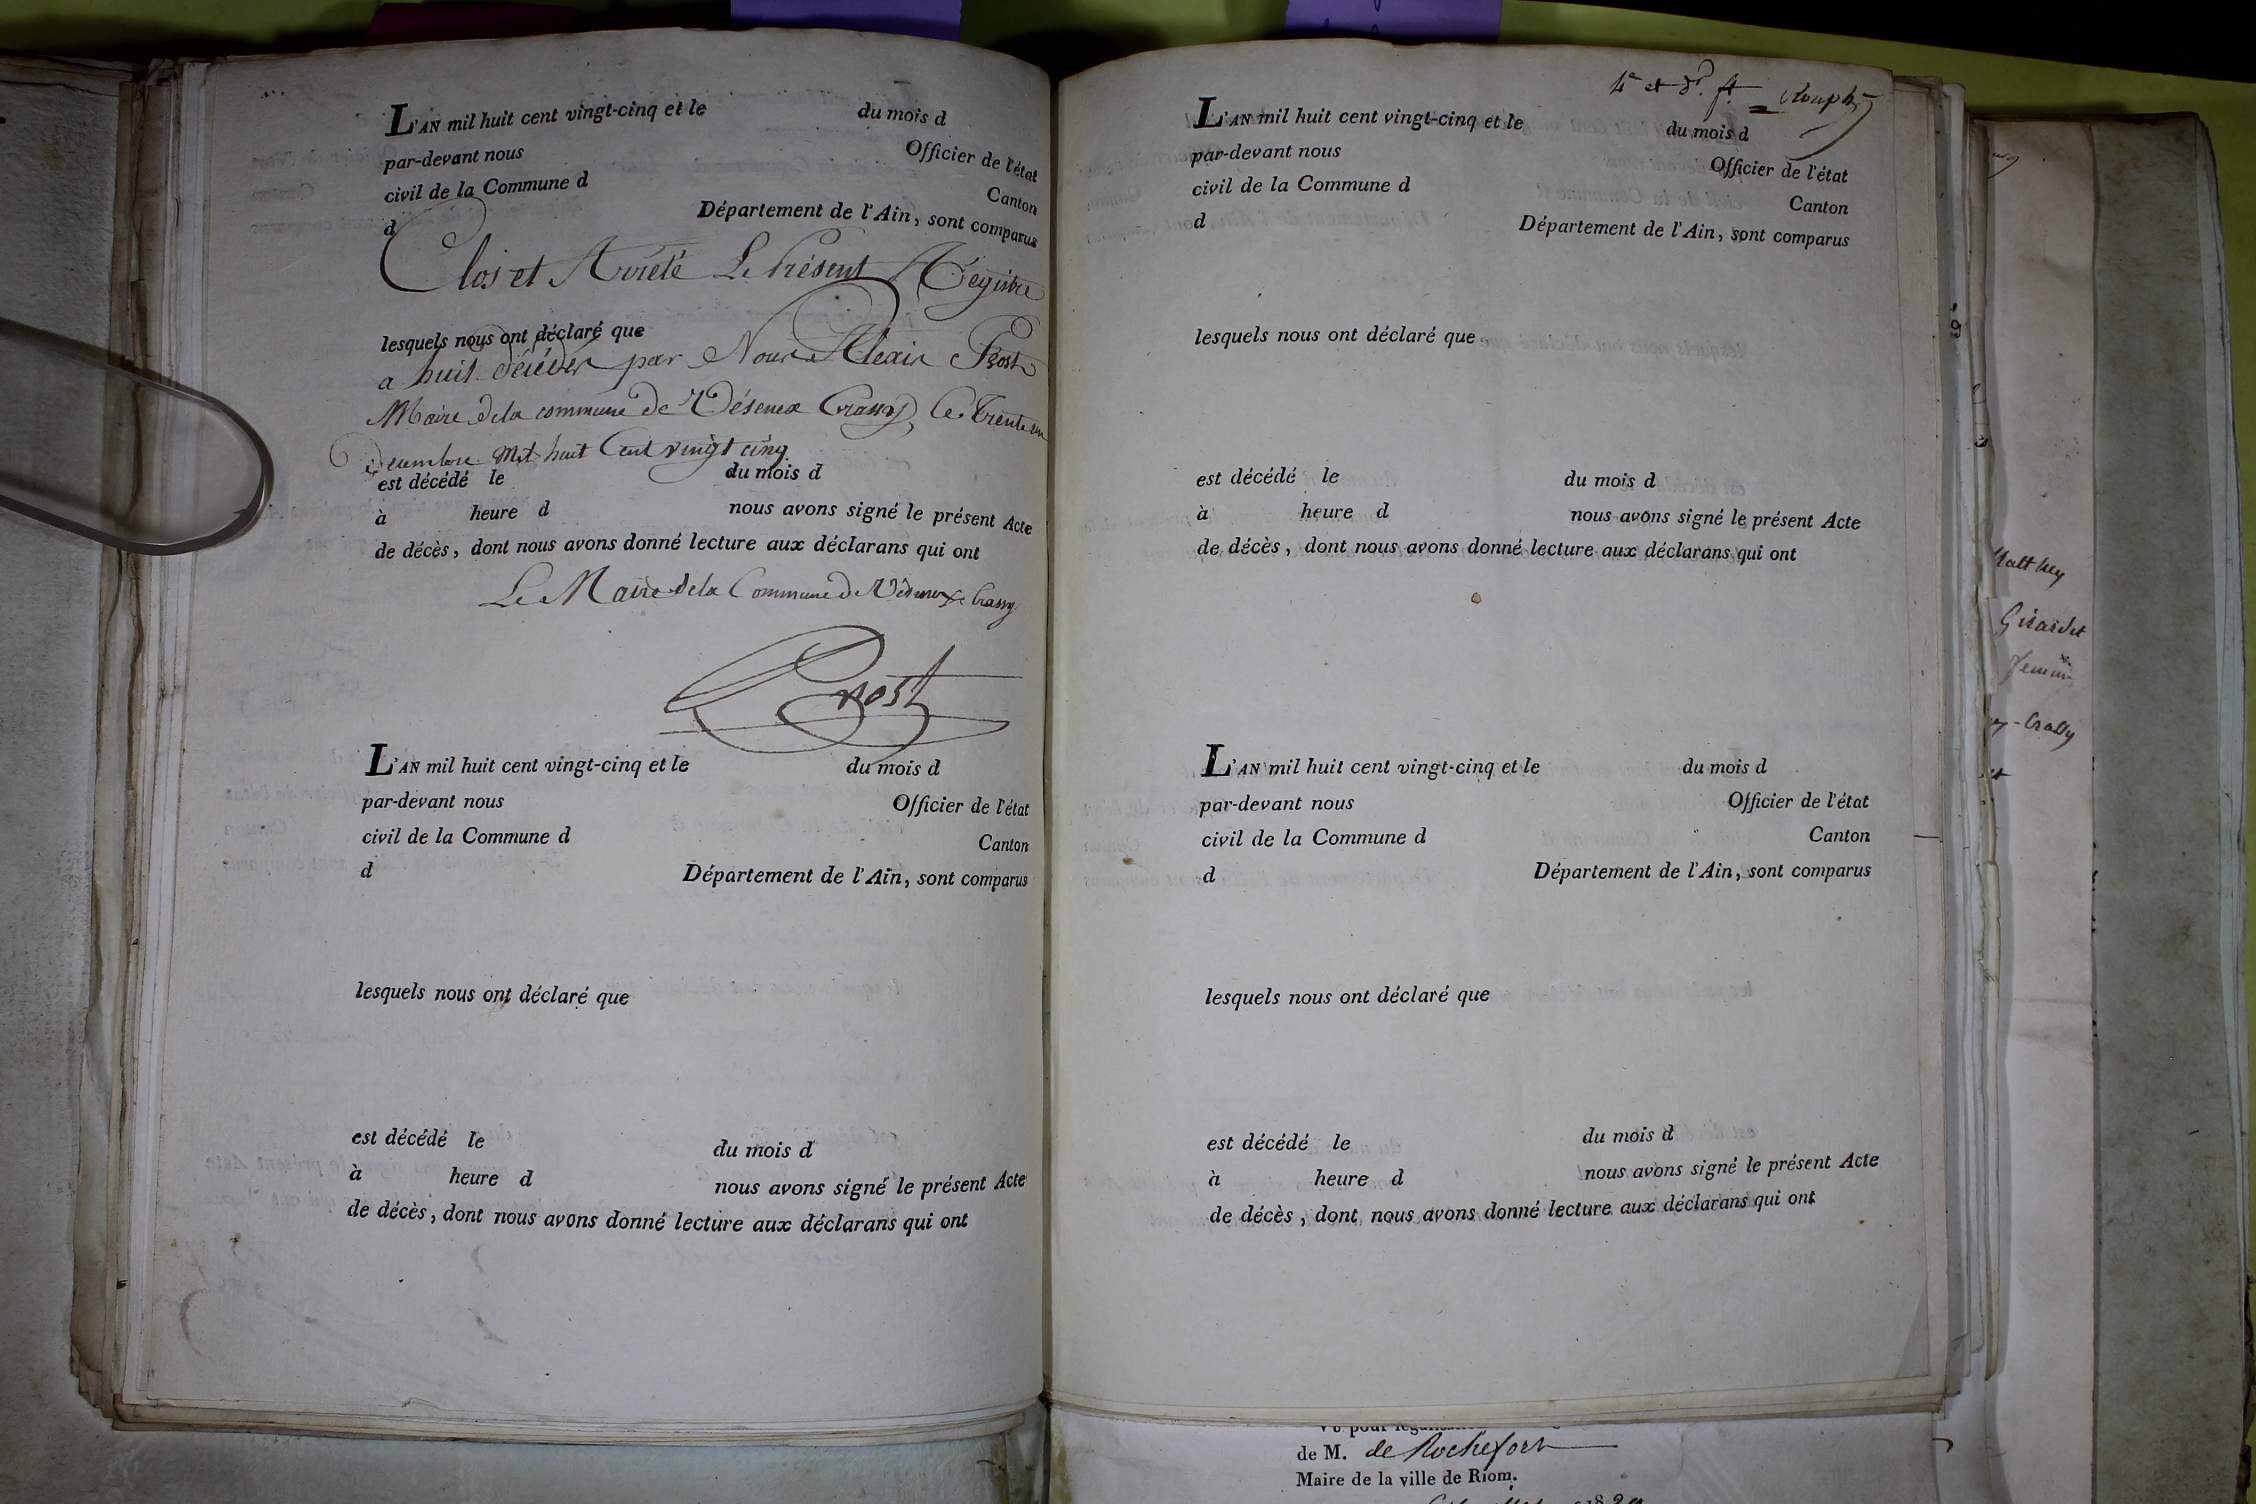 L'AN mil huit cent vingt-cinq et le du mois d
par-devant nous Officier de l'état
civil de la Commune d Canton
d Département de l'Ain, sont comparus
Clos et Arrété Le Présent Régistre
lesquels nous ont déclaré que
a huit par Nous Alexis Prost
Maire de la commune de Vésenex Crassy, Le Trente un
Décembre Mil huit Cent vingt cinq
est décédé le du mois d
à heure d nous avons signé le présent Acte
de décès, dont nous avons donné lecture aux déclarans qui ont
Le Maire de la Commune de Vésenex Crassy
Prost
L'AN mil huit cent vingt-cinq et le du mois d
par-devant nous Officier de l'état
civil de la Commune d Canton
d Département de l'Ain, sont comparus
lesquels nous ont déclaré que
est décédé le du mois d
à heure d nous avons signé le présent Acte
de décès, dont nous avons donné lecture aux déclarans qui ont
4e et dr. ft.
L'AN mil huit cent vingt-cinq et le du mois d
par-devant nous Officier de l'état
civil de la Commune d Canton
d Département de l'Ain, sont comparus
lesquels nous ont déclaré que
est décédé le du mois d
à heure d nous avons signé le présent Acte
de décès, dont nous avons donné lecture aux déclarans qui ont
L'AN mil huit cent vingt-cinq et le du mois d
par-devant nous Officier de l'état
civil de la Commune d Canton
d Département de l'Ain, sont comparus
lesquels nous ont déclaré que
est décédé le du mois d
à heure d nous avons signé le présent Acte
de décès, dont nous avons donné lecture aux déclarans qui ont
Matthey
Girardet
Crassy
de M. de Rochefort
Maire de la ville de Riom.